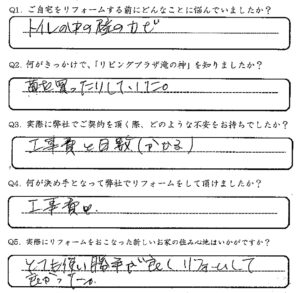 Q1. ご自宅をリフォームする前にどんなことに悩んでいましたか？
トイレの中の壁のカビ
Q2. 何がきっかけで、「リビングプラザ滝の神」を知りましたか？
買ったりしていた。
Q3. 実際に弊社でご契約を頂く際、どのような不安をお持ちでしたか？
工事費と日数(かかる)
Q4. 何が決め手となって弊社でリフォームをして頂けましたか？
工事費
Q5. 実際にリフォームをおこなった新しいお家の住み心地はいかがですか？
とても使い勝手が良くリフォームして
良かった。